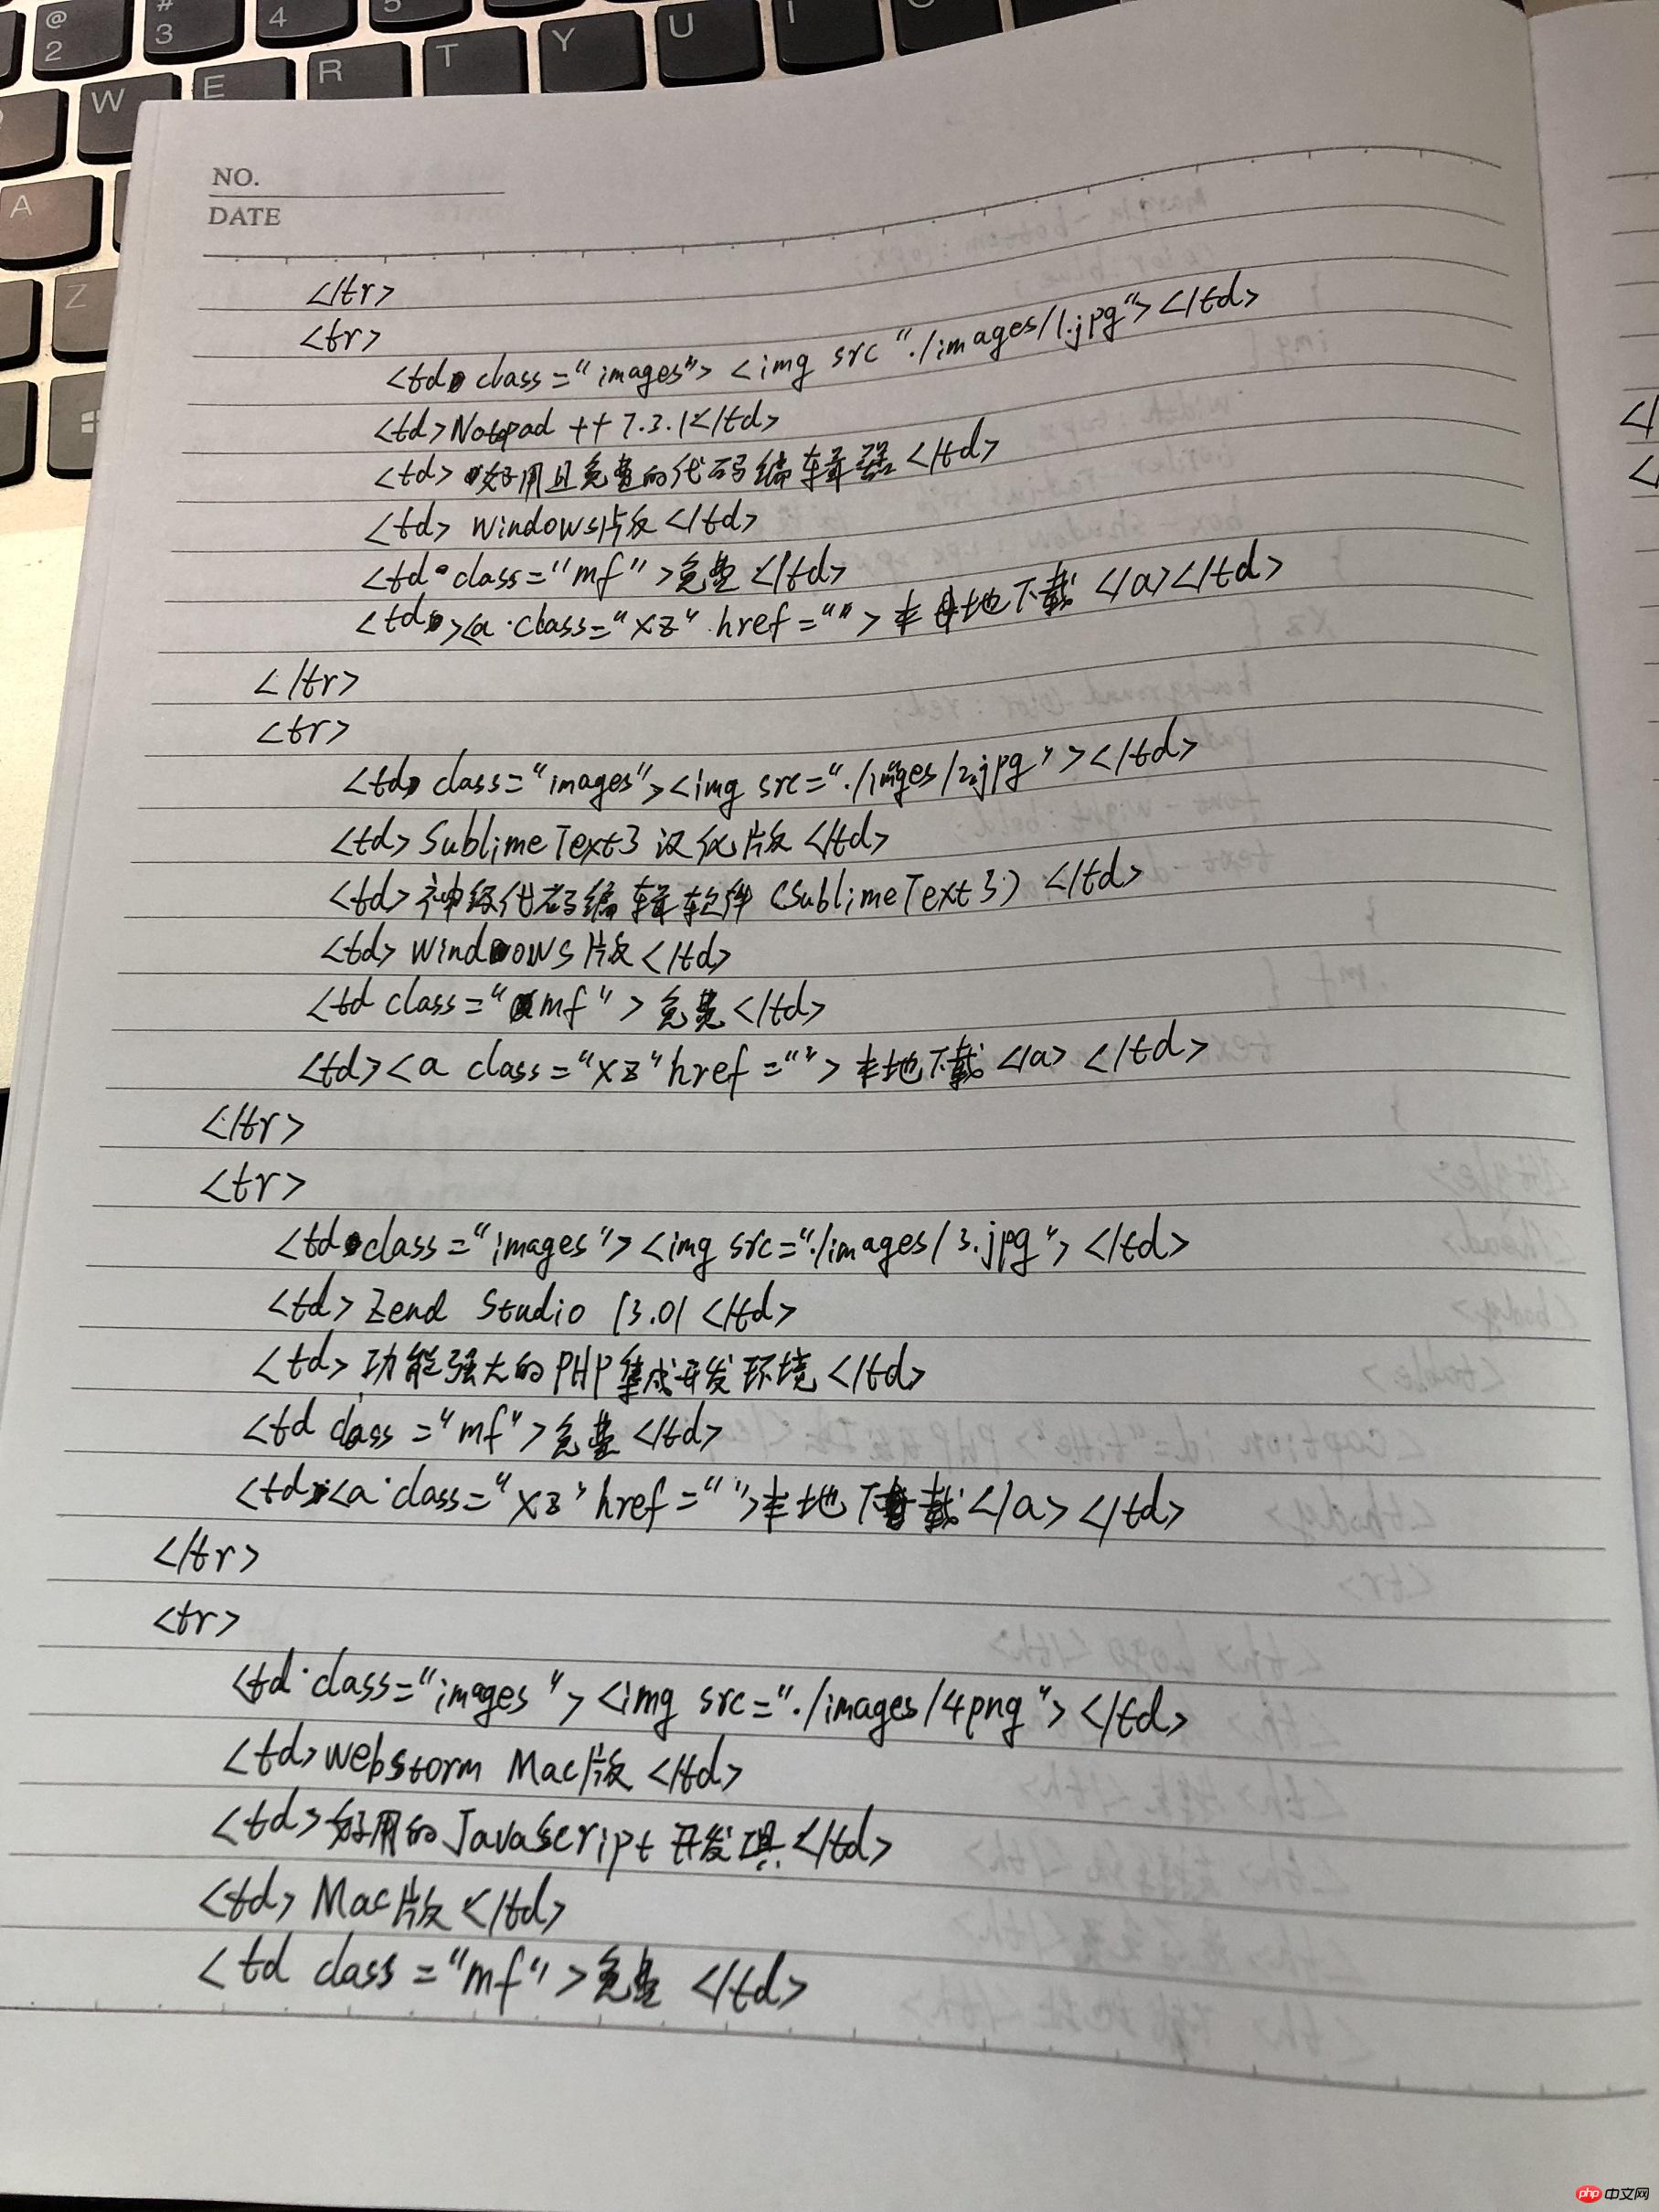 @ 2
# 3
4
5
W E R T Y U I
A
Z
NO.
DATE
</tr>
<tr>
<td class="images"> <img src "./images/1.jpg"></td>
<td>Notepad ++ 7.3.1</td>
<td>好用且免费的代码编辑器</td>
<td> windows版 </td>
<td class="mf">免费</td>
<td><a class="xz" href="">本地下载</a></td>
</tr>
<tr>
<td class="images"><img src="./images/2.jpg"></td>
<td>SublimeText3 汉化版</td>
<td>神级代码编辑软件(SublimeText3)</td>
<td>windows 版</td>
<td class="mf">免费</td>
<td><a class="xz" href="">本地下载</a></td>
</tr>
<tr>
<td class="images"><img src="./images/3.jpg"></td>
<td>Zend Studio 13.01</td>
<td>功能强大的PHP集成开发环境</td>
<td class="mf">免费</td>
<td><a class="xz" href="">本地下载</a></td>
</tr>
<tr>
<td class="images"><img src="./images/4png"></td>
<td>webstorm Mac版</td>
<td>好用的JavaScript开发工具</td>
<td>Mac版</td>
<td class="mf">免费</td>
php 中文网